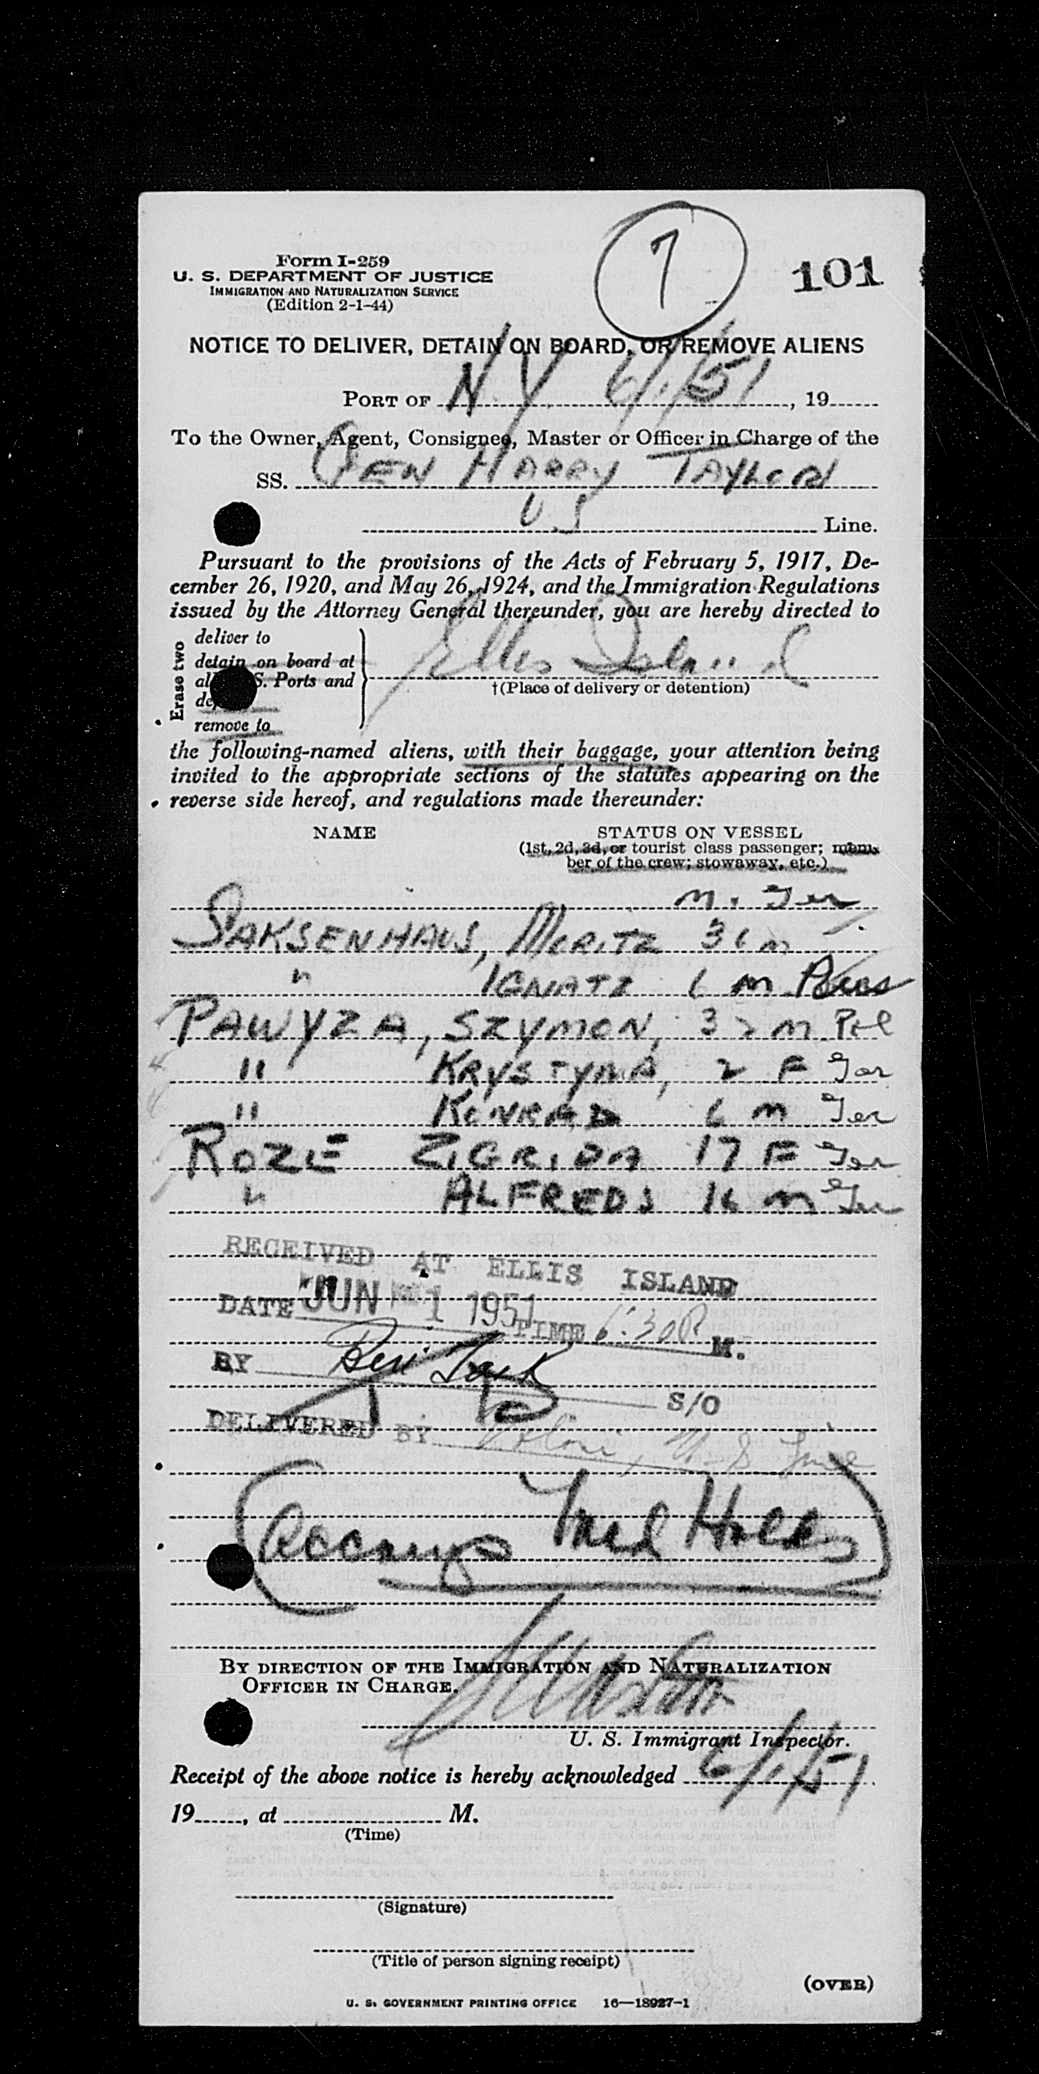 7
101
Form I-259
U. S. DEPARTMENT OF JUSTICE
IMMIGRATION AND NATURALIZATION SERVICE
(Edition 2-1-44)
NOTICE TO DELIVER, DETAIN ON BOARD, OR REMOVE ALIENS
PORT OF N. Y. 6/1/51, 19
To the Owner, Agent, Consignee, Master or Officer in Charge of the
SS. GEN HARRY TAYLOR
U S Line.
Pursuant to the provisions of the Acts of February 5, 1917, De-
cember 26, 1920, and May 26, 1924, and the Immigration Regulations
issued by the Attorney General thereunder, you are hereby directed to
Erase two
deliver to
detain on board at
al S. Ports and
de
remove to
Ellis Island
†(Place of delivery or detention)
the following-named aliens, with their baggage, your attention being
invited to the appropriate sections of the statutes appearing on the
reverse side hereof, and regulations made thereunder:
NAME STATUS ON VESSEL
(1st, 2d, 3d, or tourist class passenger; mem-
ber of the crew; stowaway, etc.)
M. Ger
SAKSENHAUS, MORITZ 36 m
" IGNATZ 6 m
PAWYZA, SZYMON, 37 m Pol
" KRYSTYNA, 2 F Ger
" KONRAD 6 m Ger
ROZE ZIGRIDA 17 F Ger
" ALFREDS 16 m Ger
RECEIVED AT ELLIS ISLAND
DATE JUN 1 1951 TIME 6:30 P M.
BY Ben S/O
DELIVERED BY U S Line
(Accomp Med Holds)
BY DIRECTION OF THE IMMIGRATION AND NATURALIZATION
OFFICER IN CHARGE.
U. S. Immigrant Inspector.
Receipt of the above notice is hereby acknowledged 6/1/51
19, at M.
(Time)
(Signature)
(Title of person signing receipt)
(OVER)
U. S. GOVERNMENT PRINTING OFFICE 16—18927-1